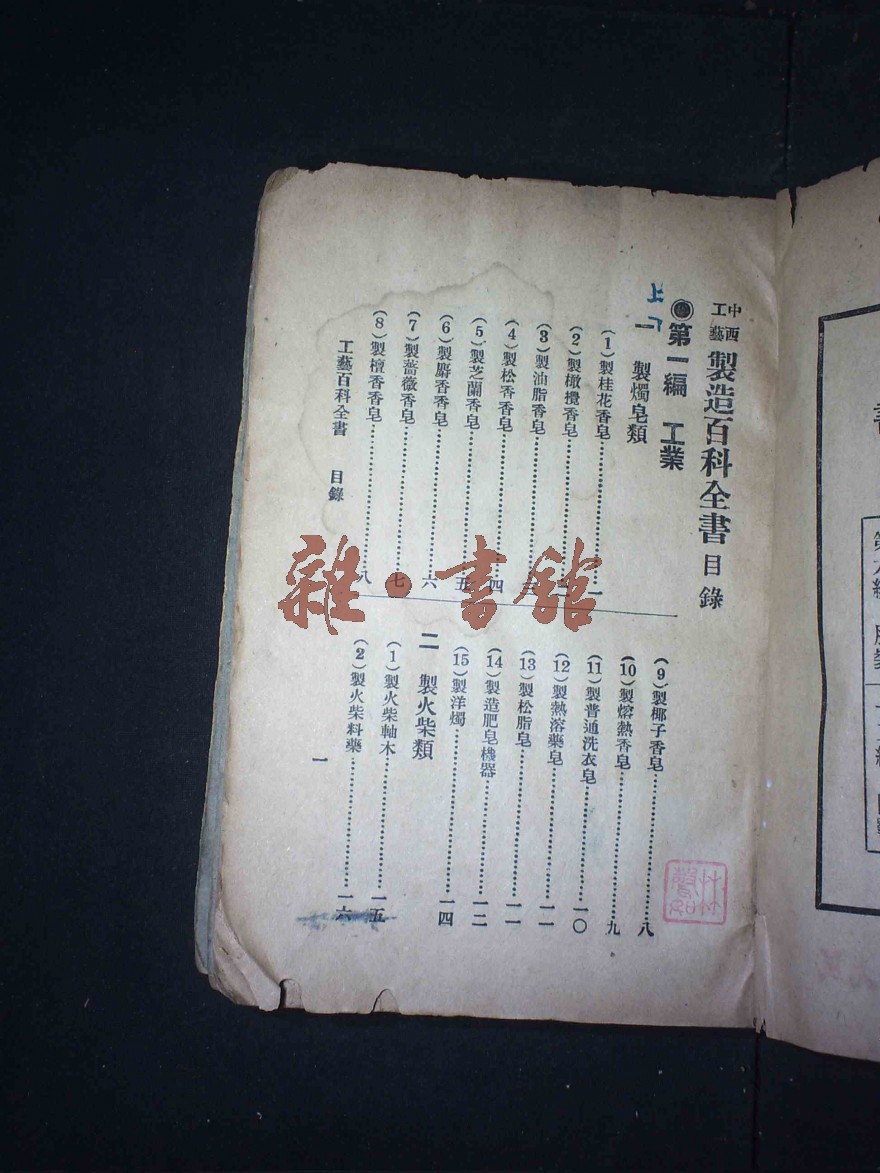 中西工藝 製造百科全書 目錄
第一編 工業
一 製燭皂類
(1)製桂花香皂……一
(2)製橄欖香皂……
(3)製油脂香皂……三
(4)製松香香皂……四
(5)製芝蘭香皂……五
(6)製麝香香皂……六
(7)製薔薇香皂……七
(8)製檀香香皂……八
(9)製椰子香皂……八
(10)製熔熱香皂……九
(11)製普通洗衣皂……一〇
(12)製熱溶藥皂……一一
(13)製松脂皂……一一
(14)製造肥皂機器……一二
(15)製洋燭……一四
二 製火柴類
(1)製火柴軸木……一五
(2)製火柴料藥……一六
工藝百科全書 目錄
一
雜·書館